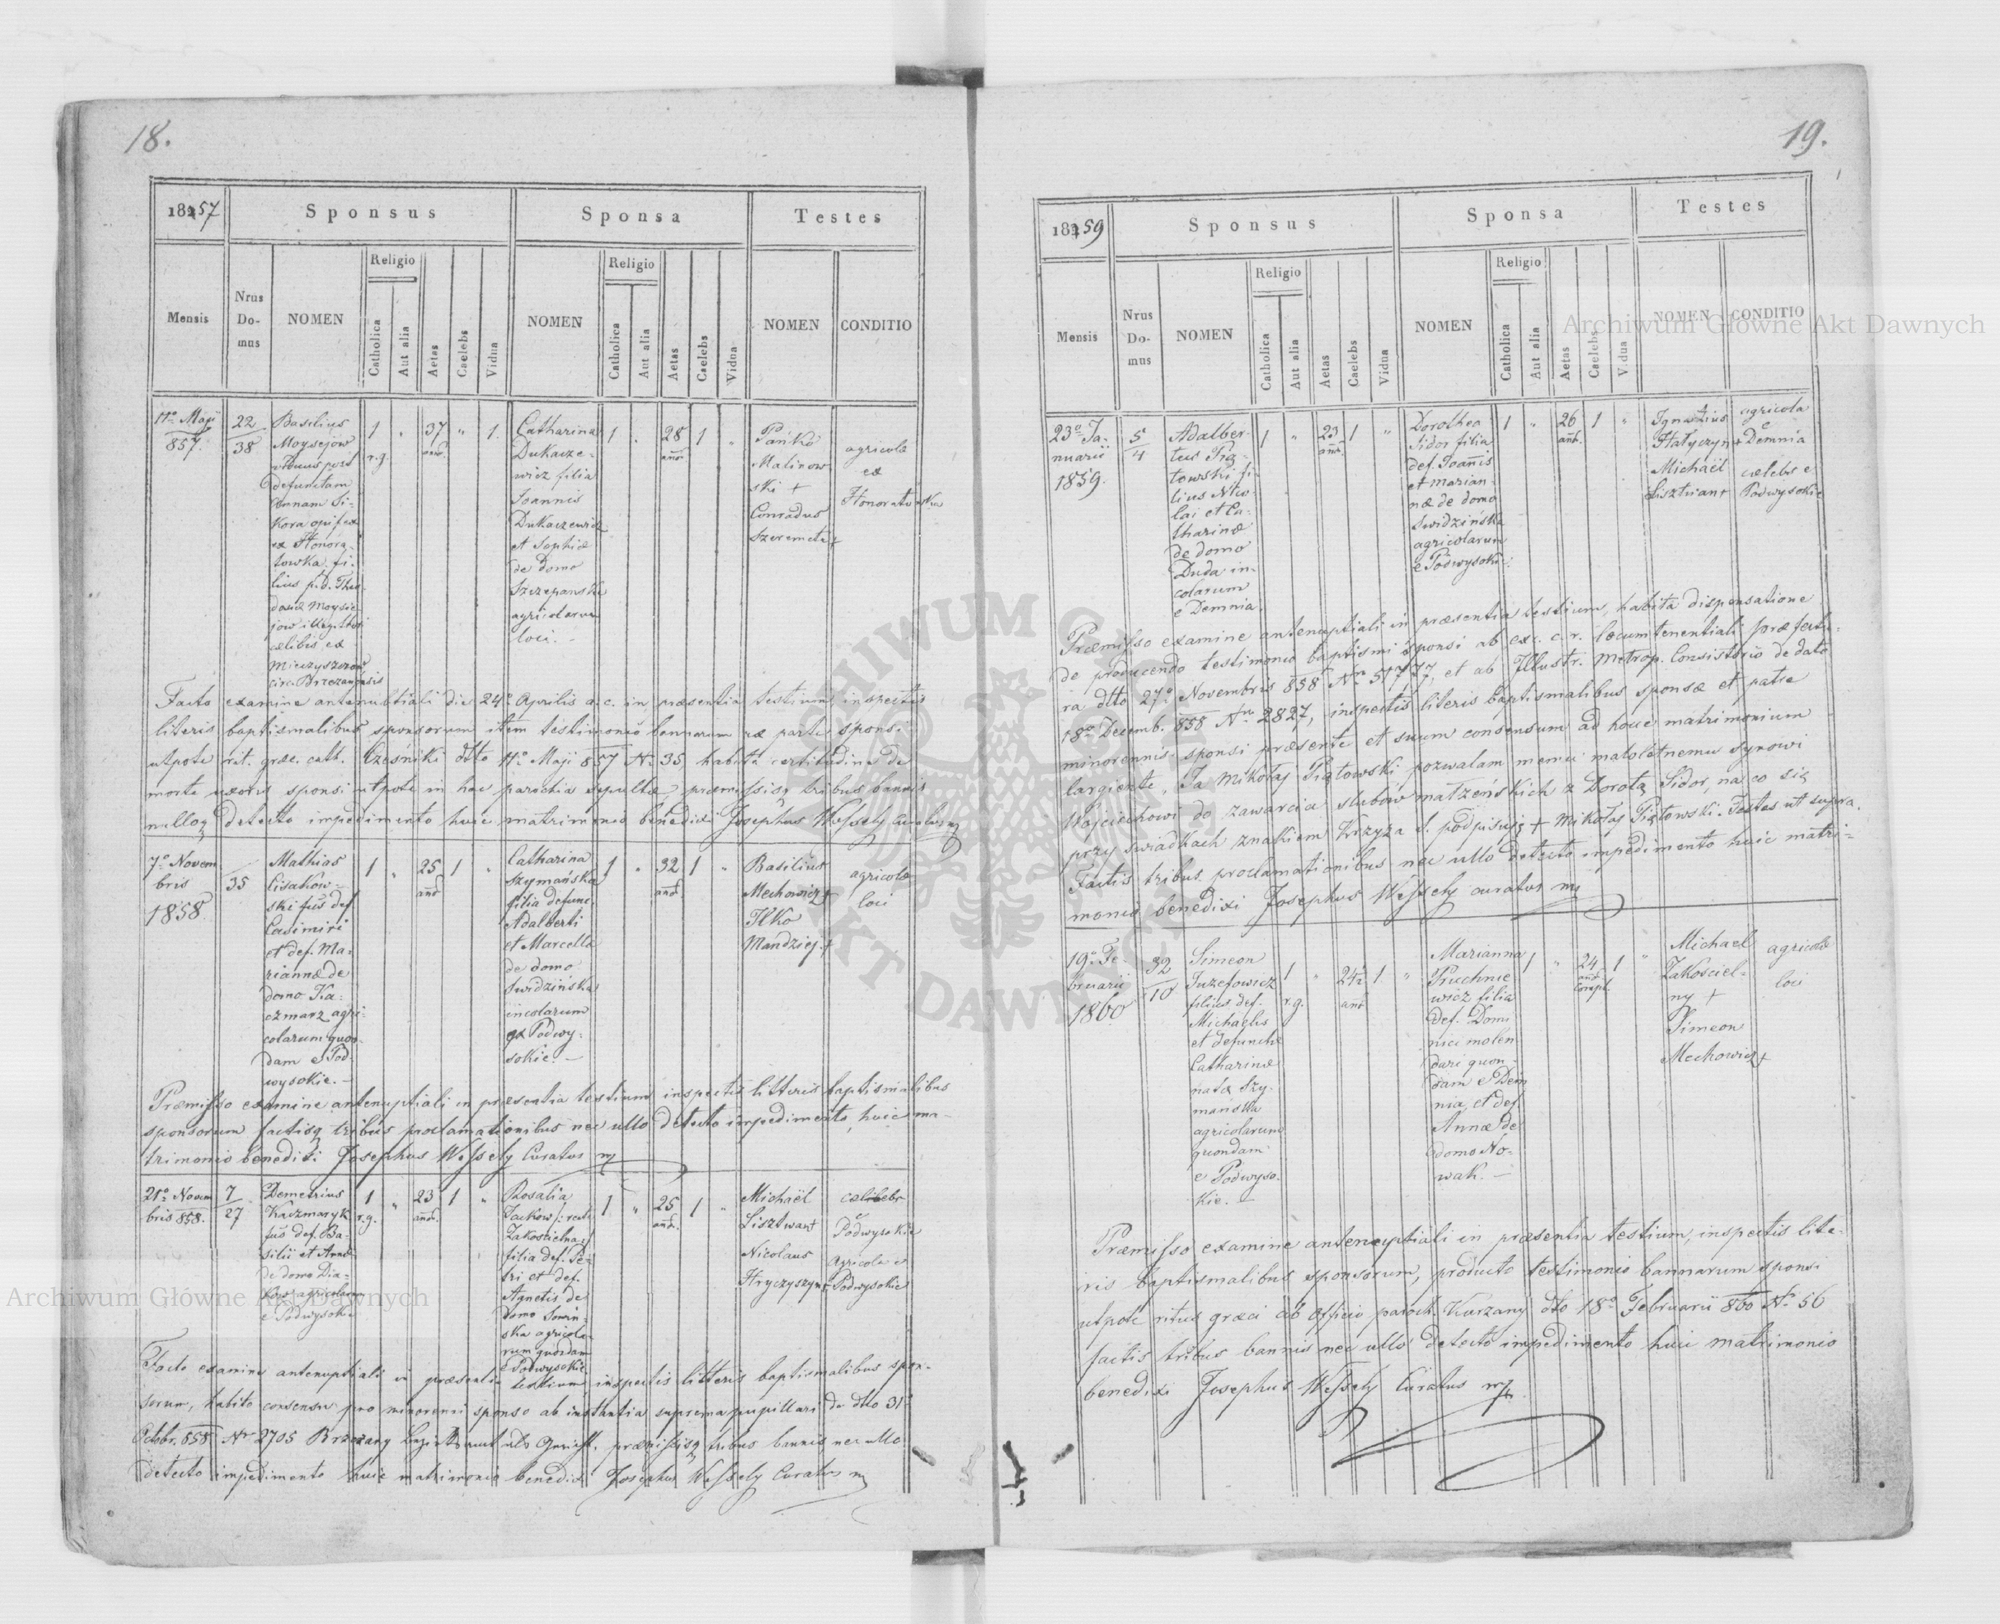 18.
1857
Sponsus
Sponsa
Testes
Mensis
Nrus Domus
NOMEN
Religio
Catholica
Aut alia
Aetas
Caelebs
Vidua
NOMEN
Religio
Catholica
Aut alia
Aetas
Caelebs
Vidua
NOMEN
CONDITIO
11º Maji
857.
22
38
Basilius
Moysejow
viduus post
defunctam
Annam Si-
kora opifex
ex Honora-
towka fi-
lius
cælibis ex
Mieczyszczow
circ. Brzezanensis
1
r.g.
"
37
ann.
"
1.
Catharina
Dukacze-
wicz filia
Joannis
Dukaczewicz
et Sophiæ
de domo
Szczepanska
agricolarum
loci. -
1
"
28
ann.
1
"
Pańko
Malinow-
ski +
Conradus
Szeremeta +
agricolæ
ex
Honoratowka
Facto examine antenubtiali die 24º Aprilis a. c. in præsentia testium, inspectis
literis baptismalibus sponsorum item testimonio bannorum ex parte sponsi
utpote rit. græc. cath. Cześniki dtto 11º Maji 857 Nº 35 habita certitudine de
morte uxoris sponsi utpote in hac parochia sepultæ, præmissisq tribus bannis
nulloq detecto impedimento huic matrimonio benedixi Josephus Wessely Curatus
7º Novem
bris
1858
35
Mathias
Lisakow-
ski fils def.
Casimiri
et def. Ma-
riannæ de
domo Ka-
czmarz agri-
colarum quon-
dam e Pod-
wysokie. -
1
"
25
ann
1
"
Catharina
Szymańska
filia defunc.
Adalberti
et Marcella
de domo
Swidzińska
incolarum
ex Podwy-
sokie. -
1
"
32
ann
1
"
Basilius
Mechowicz +
Ilko
Mandziej +
agricolæ
loci
Præmisso examine antenuptiali in præsentia testium, inspectis litteris baptismalibus
sponsorum factisq tribus proclamationibus nec ullo detecto impedimento, huic ma-
trimonio benedixi Josephus Wessely Curatus
21º Novem
bris 858.
7
27
Demetrius
Kaczmaryk
fils def. Ba-
silii et Annæ
de domo Dia-
kow agricolarum
e Podwysokie
1
r.g.
"
23
ann.
1
"
Rosalia
Zackow /: recte
Zakoscielna :/
filia def. Pe-
tri et def.
Agnetis de
domo Sowin-
ska agricola-
rum quondam
e Podwysokie
1
"
25
ann.
1
"
Michaël
Lisztwan +
Nicolaus
Hryczyszyn +
cælebs
e
Podwysokie
Agricola e
Podwysokie
Facto examine antenuptiali in præsentia testium inspectis litteris baptismalibus spon-
sorum, habito consensu pro minorenni sponso ab instantia suprema pupillari de dtto 31º
Octobr. 858 Nº 2705 Brzezany Bezirksamt als Gericht, præmissisq tribus bannis nec ullo
detecto impedimento huic matrimonio benedixi Josephus Wessely Curatus
19.
1859
Sponsus
Sponsa
Testes
Mensis
Nrus Domus
NOMEN
Religio
Catholica
Aut alia
Aetas
Caelebs
Vidua
NOMEN
Religio
Catholica
Aut alia
Aetas
Caelebs
Vidua
NOMEN
CONDITIO
23º Ja-
nuarii
1859.
5
4
Adalber-
tus Pią-
towski fi-
lius Nico
lai et Ca-
tharinæ
de domo
Duda in-
colarum
e Demnia.
1
"
23
ann.
1
"
Dorothea
Sidor filia
def. Joannis
et Marian-
næ de domo
Swidzińska
agricolarum
e Podwysokie.
1
"
26
ann.
1
"
Ignatius
Hałyczyn +
Michaël
Lisztwan +
agricola
e
Demnia
cælebs e
Podwysokie
Præmisso examine antenuptiali in præsentia testium, habita dispensatione
de producendo testimonio baptismi sponsi ab exc. c. r. locumtenentiali præfectu-
ra dtto 27º Novembris 858 Nr 51777, et ab Illustr. Metrop. Consistorio de dato
18º Decemb. 858 Nro 2827, inspectis literis baptismalibus sponsæ et patre
minorennis sponsi præsente et suum consensum ad hocce matrimonium
largiente, Ja Mikołaj Piątowski pozwalam memu małoletniemu synowi
Wojciechowi do zawarcia slubów małżeńskich z Dorotą Sidor, na co się
przy swiadkach znakiem Krzyża S. podpisuję + Mikołaj Piątowski. Testes ut supra.
Factis tribus proclamationibus nec ullo detecto impedimento huic matri-
monio benedixi Josephus Wessely curatus
19º Fe-
bruarii
1860
32
10
Simeon
Juzefowicz
filius def.
Michaelis
et defunctæ
Catharinæ
natæ Szy-
mańska
agricolarum
quondam
e Podwyso-
kie. -
1
r.g.
"
24½
ann
1
"
Marianna
Puchnie
wicz filia
def. Domi
nici molen
dari quon-
dam e Dem
nia, et def.
Annæ de
domo No-
wak. -
1
"
24
ann.
compl.
1
"
Michael
Zakościel-
ny +
Simeon
Mechowicz +
agricolæ
loci
Præmisso examine antenuptiali in præsentia testium, inspectis lite-
ris baptismalibus sponsorum, producto testimonio bannorum sponsi
utpote ritus græci ab officio paroch. Kurzany dto 18º Februarii 860 Nº 56
factis tribus bannis nec ullo detecto impedimento huic matrimonio
benedixi Josephus Wessely Curatus
Archiwum Główne Akt Dawnych
Archiwum Główne Akt Dawnych
ARCHIWUM GŁÓWNE AKT DAWNYCH